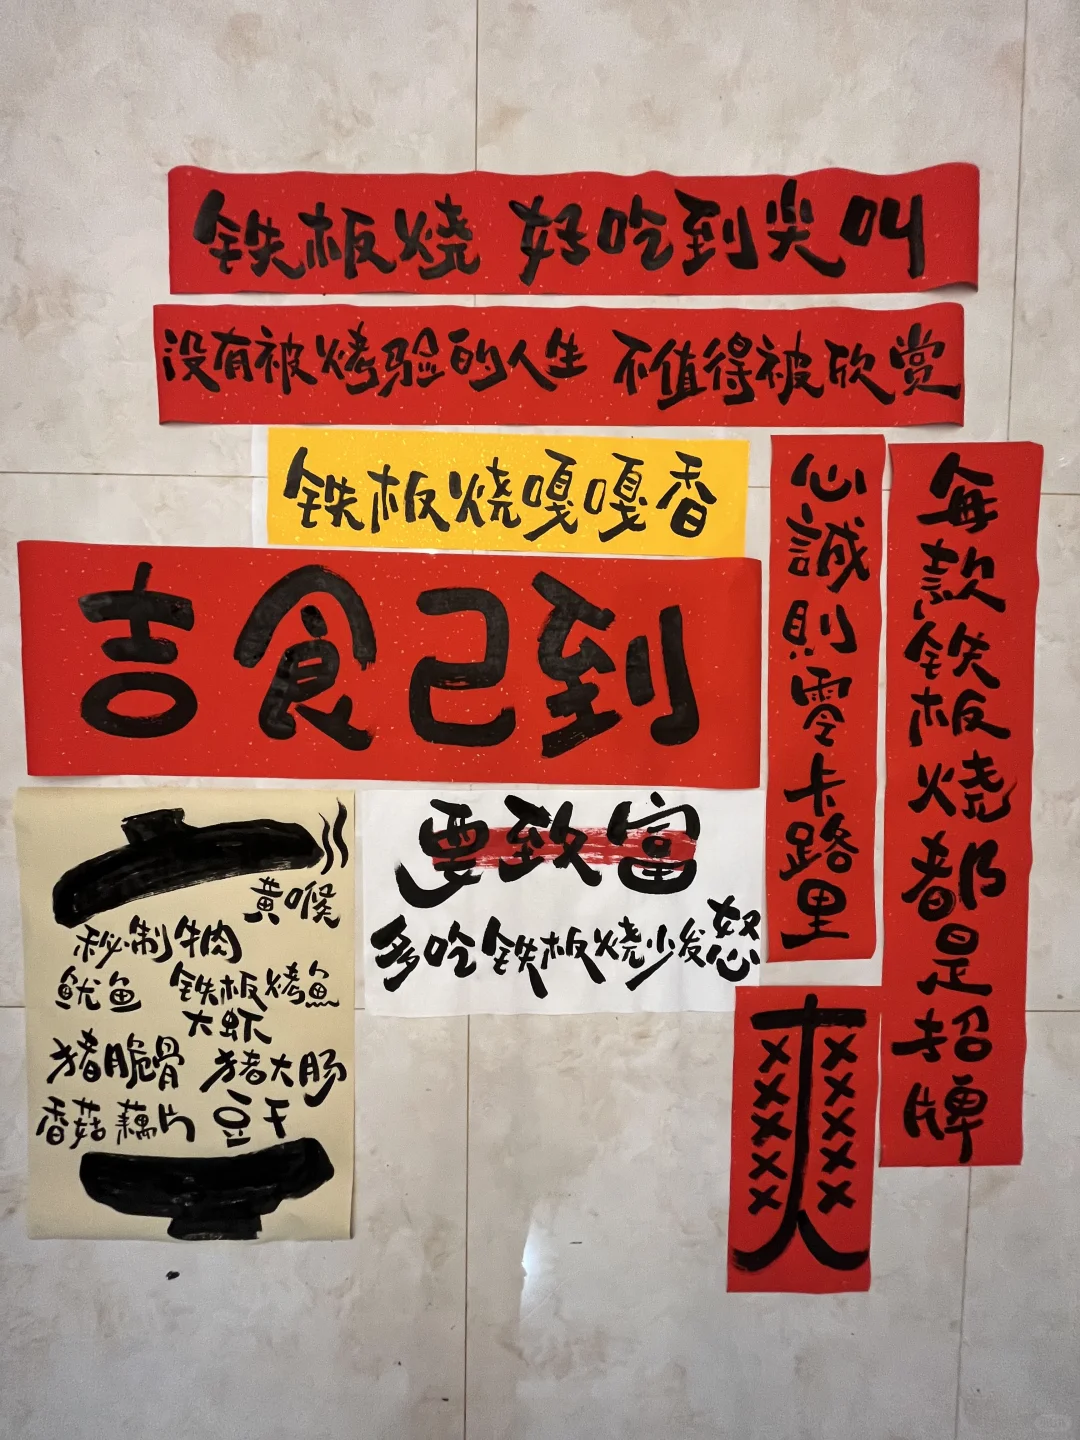 铁板烧 好吃到尖叫
没有被烤验的人生 不值得被欣赏
铁板烧嘎嘎香
吉食已到
心誠則零卡路里
每款铁板烧都是招牌
要致富
多吃铁板烧少发怒
黄喉
秘制牛肉
鱿鱼 铁板烤魚
大虾
猪脆骨 猪大肠
香菇 藕片 豆干
爽